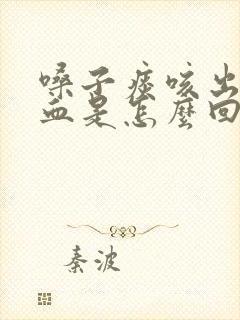 嗓子痰咳出
血是怎麼回
秦波